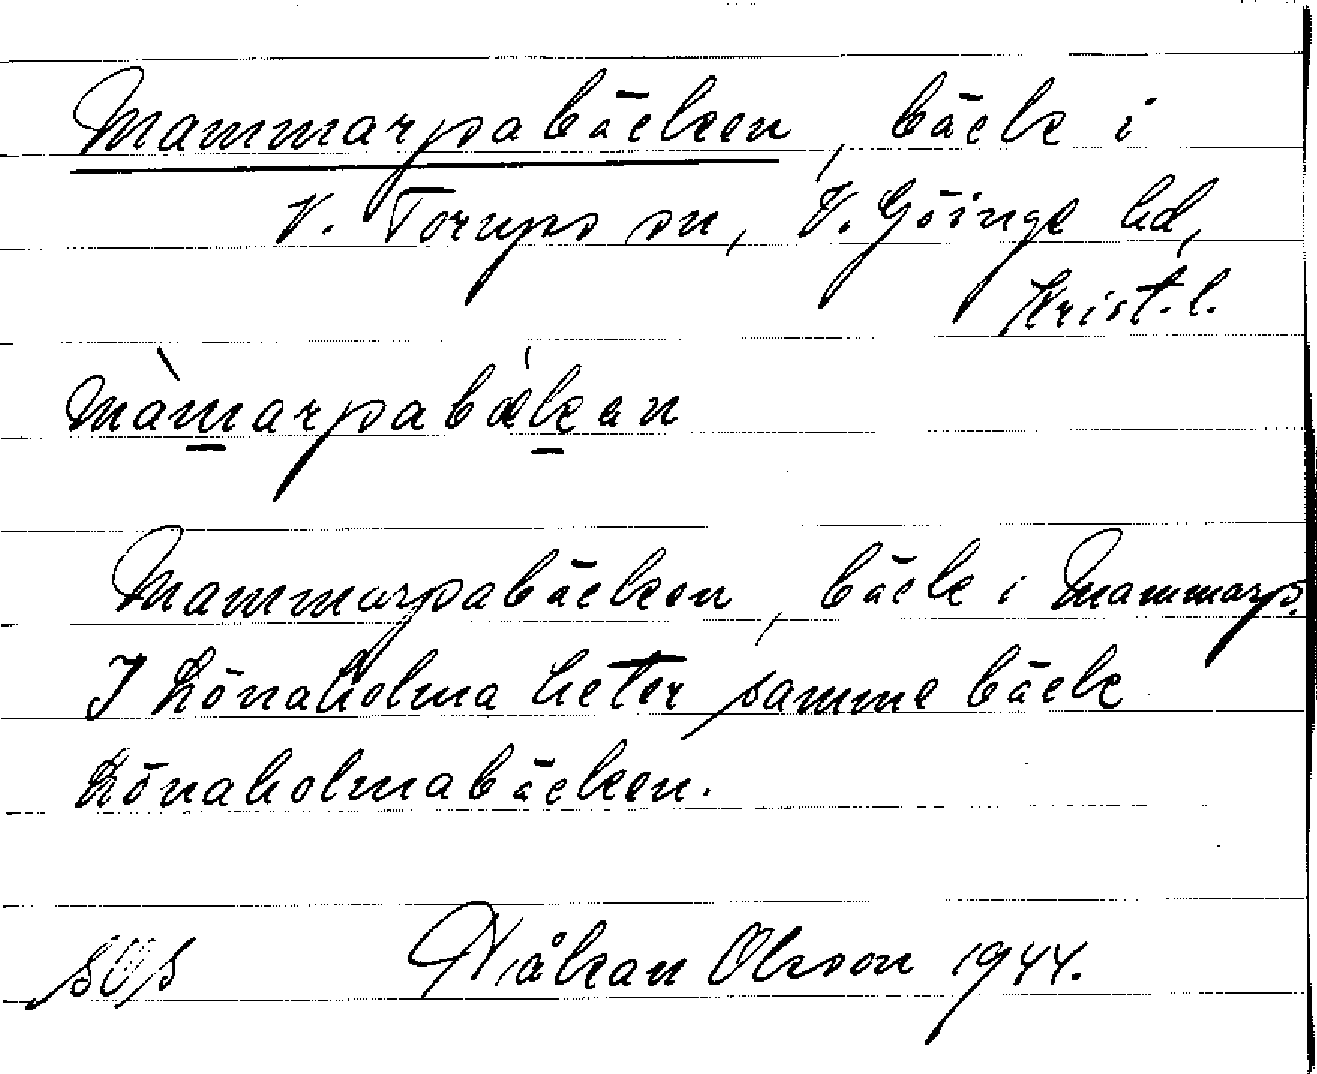 Mammarpsbäcken, bäck i
V. Torups sn, V. Göinge hd,
Krist. l.
màmarpsabǽkan
Mammarpsabäcken, bäck i Mammarp.
I Lönaholma heter samme bäck
Lönaholmabäcken.
Håkan Olsson 1944.